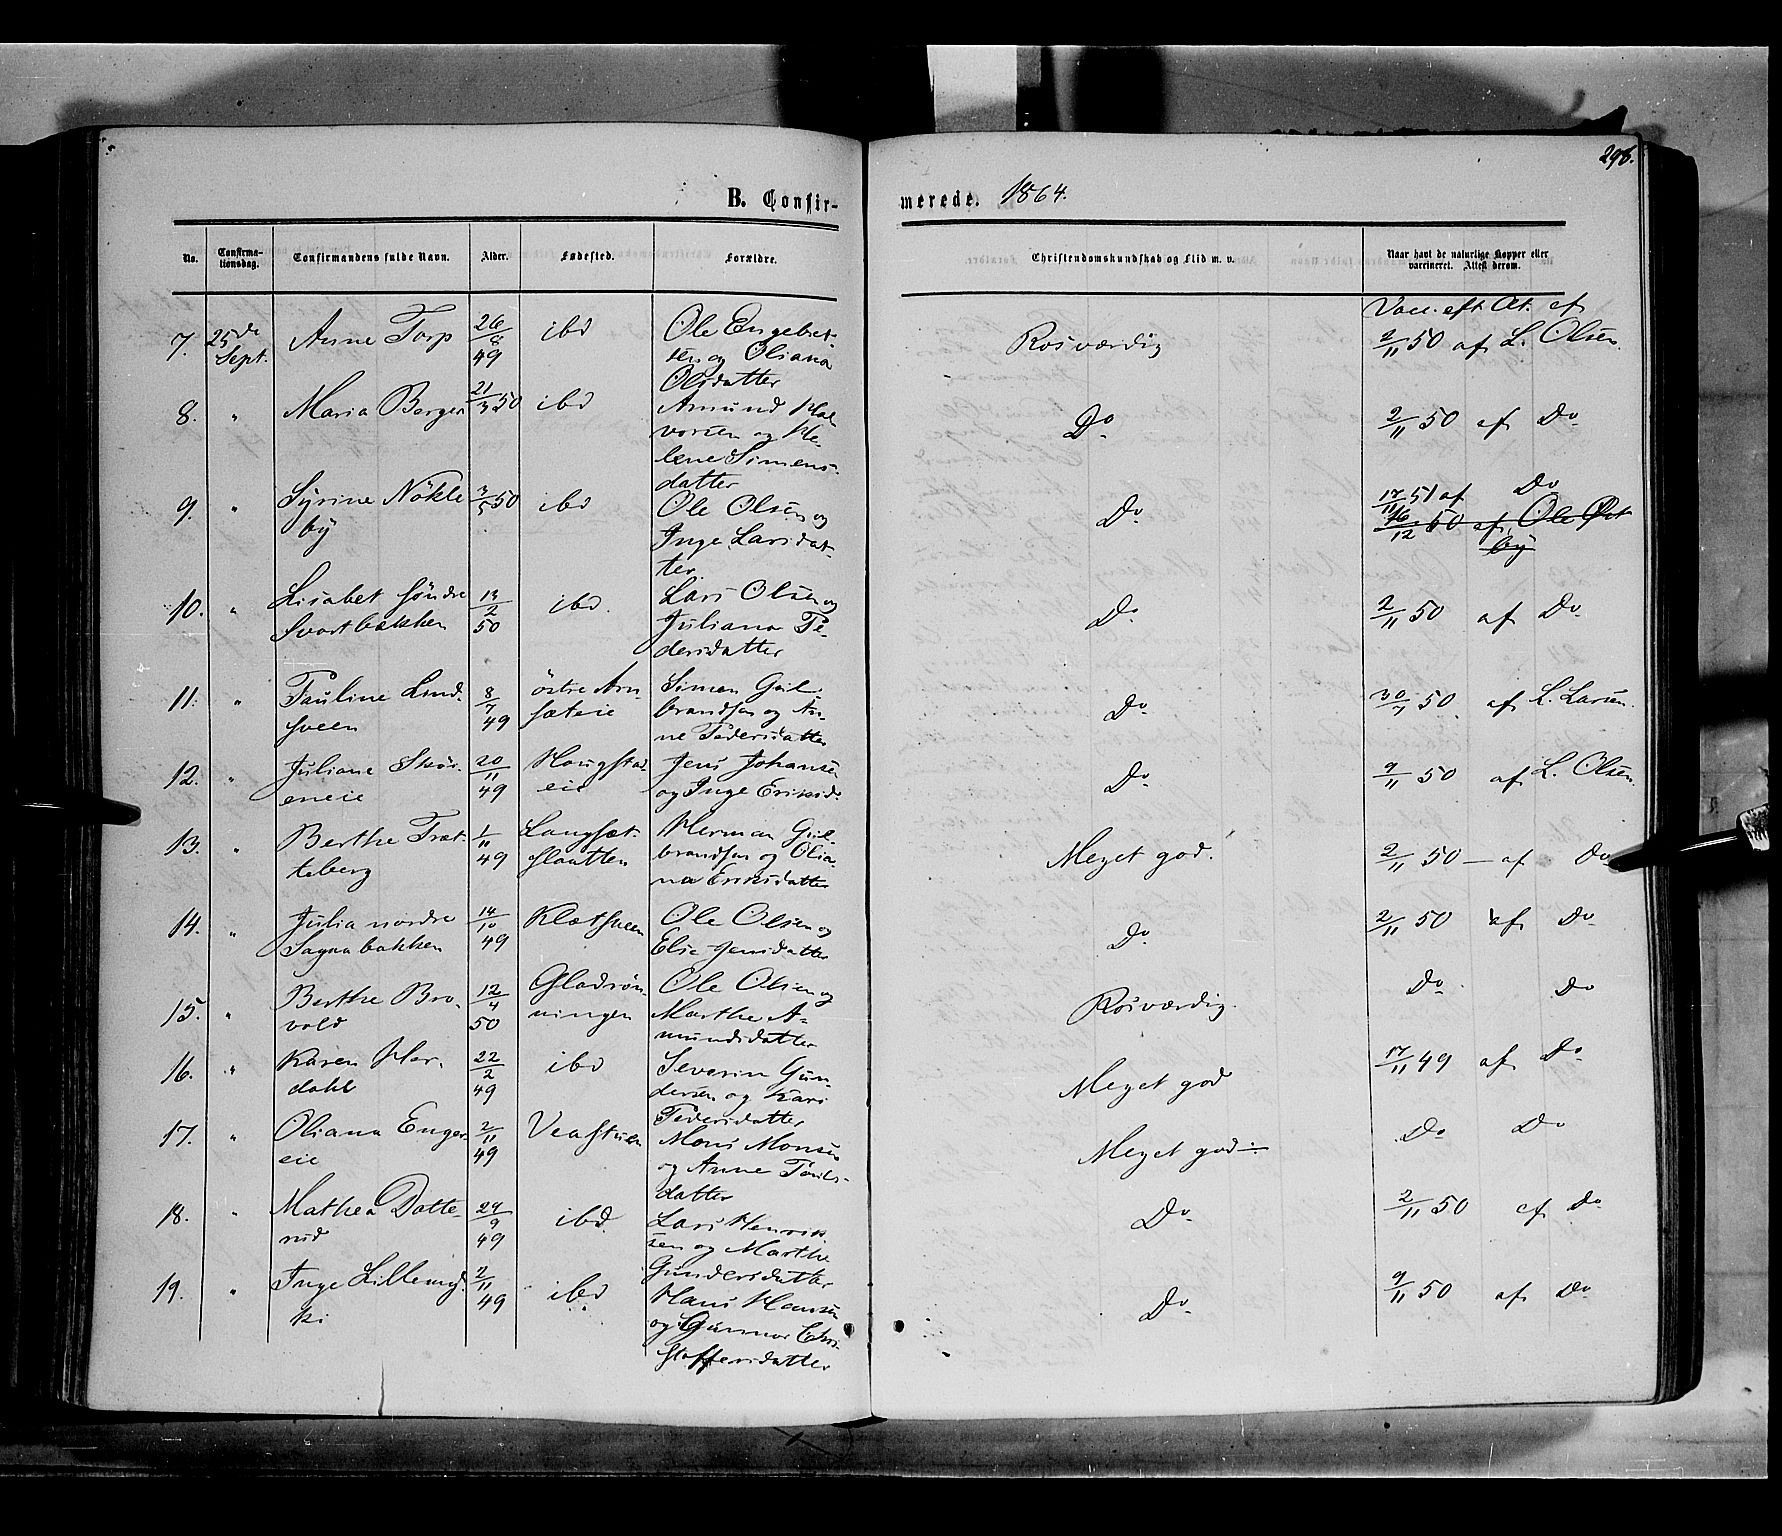 298.
B. Confir-
merede. 1864.
No.
Confirma-
tionsdag.
Confirmandens fulde Navn.
Alder.
Fødested.
Forældre.
Christendomskundskab og Flid m. v.
Naar havt de naturlige Kopper eller
vaccineret. Attest derom.
7. 25de Sept. Anne Torp 26/8 49 ibd
Ole Engebret-
sen og Oliana
Olsdatter
Rosværdig
Vacc. eft. At. af
2/11 50 af L. Olsen.
8. " Maria Berger 21/3 50 ibd
Amund Hal-
vorsen og He-
lene Simens-
datter
Do
2/11 50 af Do
9. " Syrine Nökle
by 3/5 50 ibd
Ole Olsen og
Inge Larsdat-
ter.
Do
17/11 51 af Do
16/12 50 af Ole Øst
by
10. " Lisabet söndre
Svartbakken 13/2 50 ibd.
Lars Olsen og
Juliana Pe-
dersdatter
Do
2/11 50 af Do
11. " Pauline Lund-
sveen 8/7 49 östre Arn-
sæteie
Simen Gul-
brandsen og An-
ne Pedersdatter
Do
30/7 50 af L. Larsen.
12. " Juliane Skör-
eneie 20/11 49 Haugstad-
eie
Jens Johansen
og Inge Eriksd.
Do
9/11 50 af L. Olsen
13. " Berthe Træt-
teberg 1/11 49 Langsæt-
slaatten
Herman Gul-
brandsen og Olia-
na Eriksdatter
Meget god.
2/11 50 – af Do
14. " Julia nordre
Sagnabakken 14/10 49 Klætsveen
Ole Olsen og
Else Jensdatter
Do
2/11 50 af Do
15. " Berthe Bro-
vold 12/4 50 Gladrön-
ningen
Ole Olsen og
Marthe A-
mundsdatter
Rosværdig.
Do Do
16. " Karen Hor-
dahl 22/2 49 ibd
Severin Gun-
dersen og Kari
Pedersdatter
Meget god
17/11 49 af Do
17. " Oliana Enger-
eie 2/11 49 Veastuen
Mons Monsen
og Anne Pouls-
datter
Meget god –
Do Do
18. " Mathea Datte-
rud 29/9 49 ibd.
Lars Henrik-
sen og Marthe
Gundersdatter
Do
2/11 50 af Do
19. " Inge Lillemyr-
ki 2/11 49 ibd
Hans Hansen
og Gunnor Chri-
stoffersdatter
Do
9/11 50 af Do